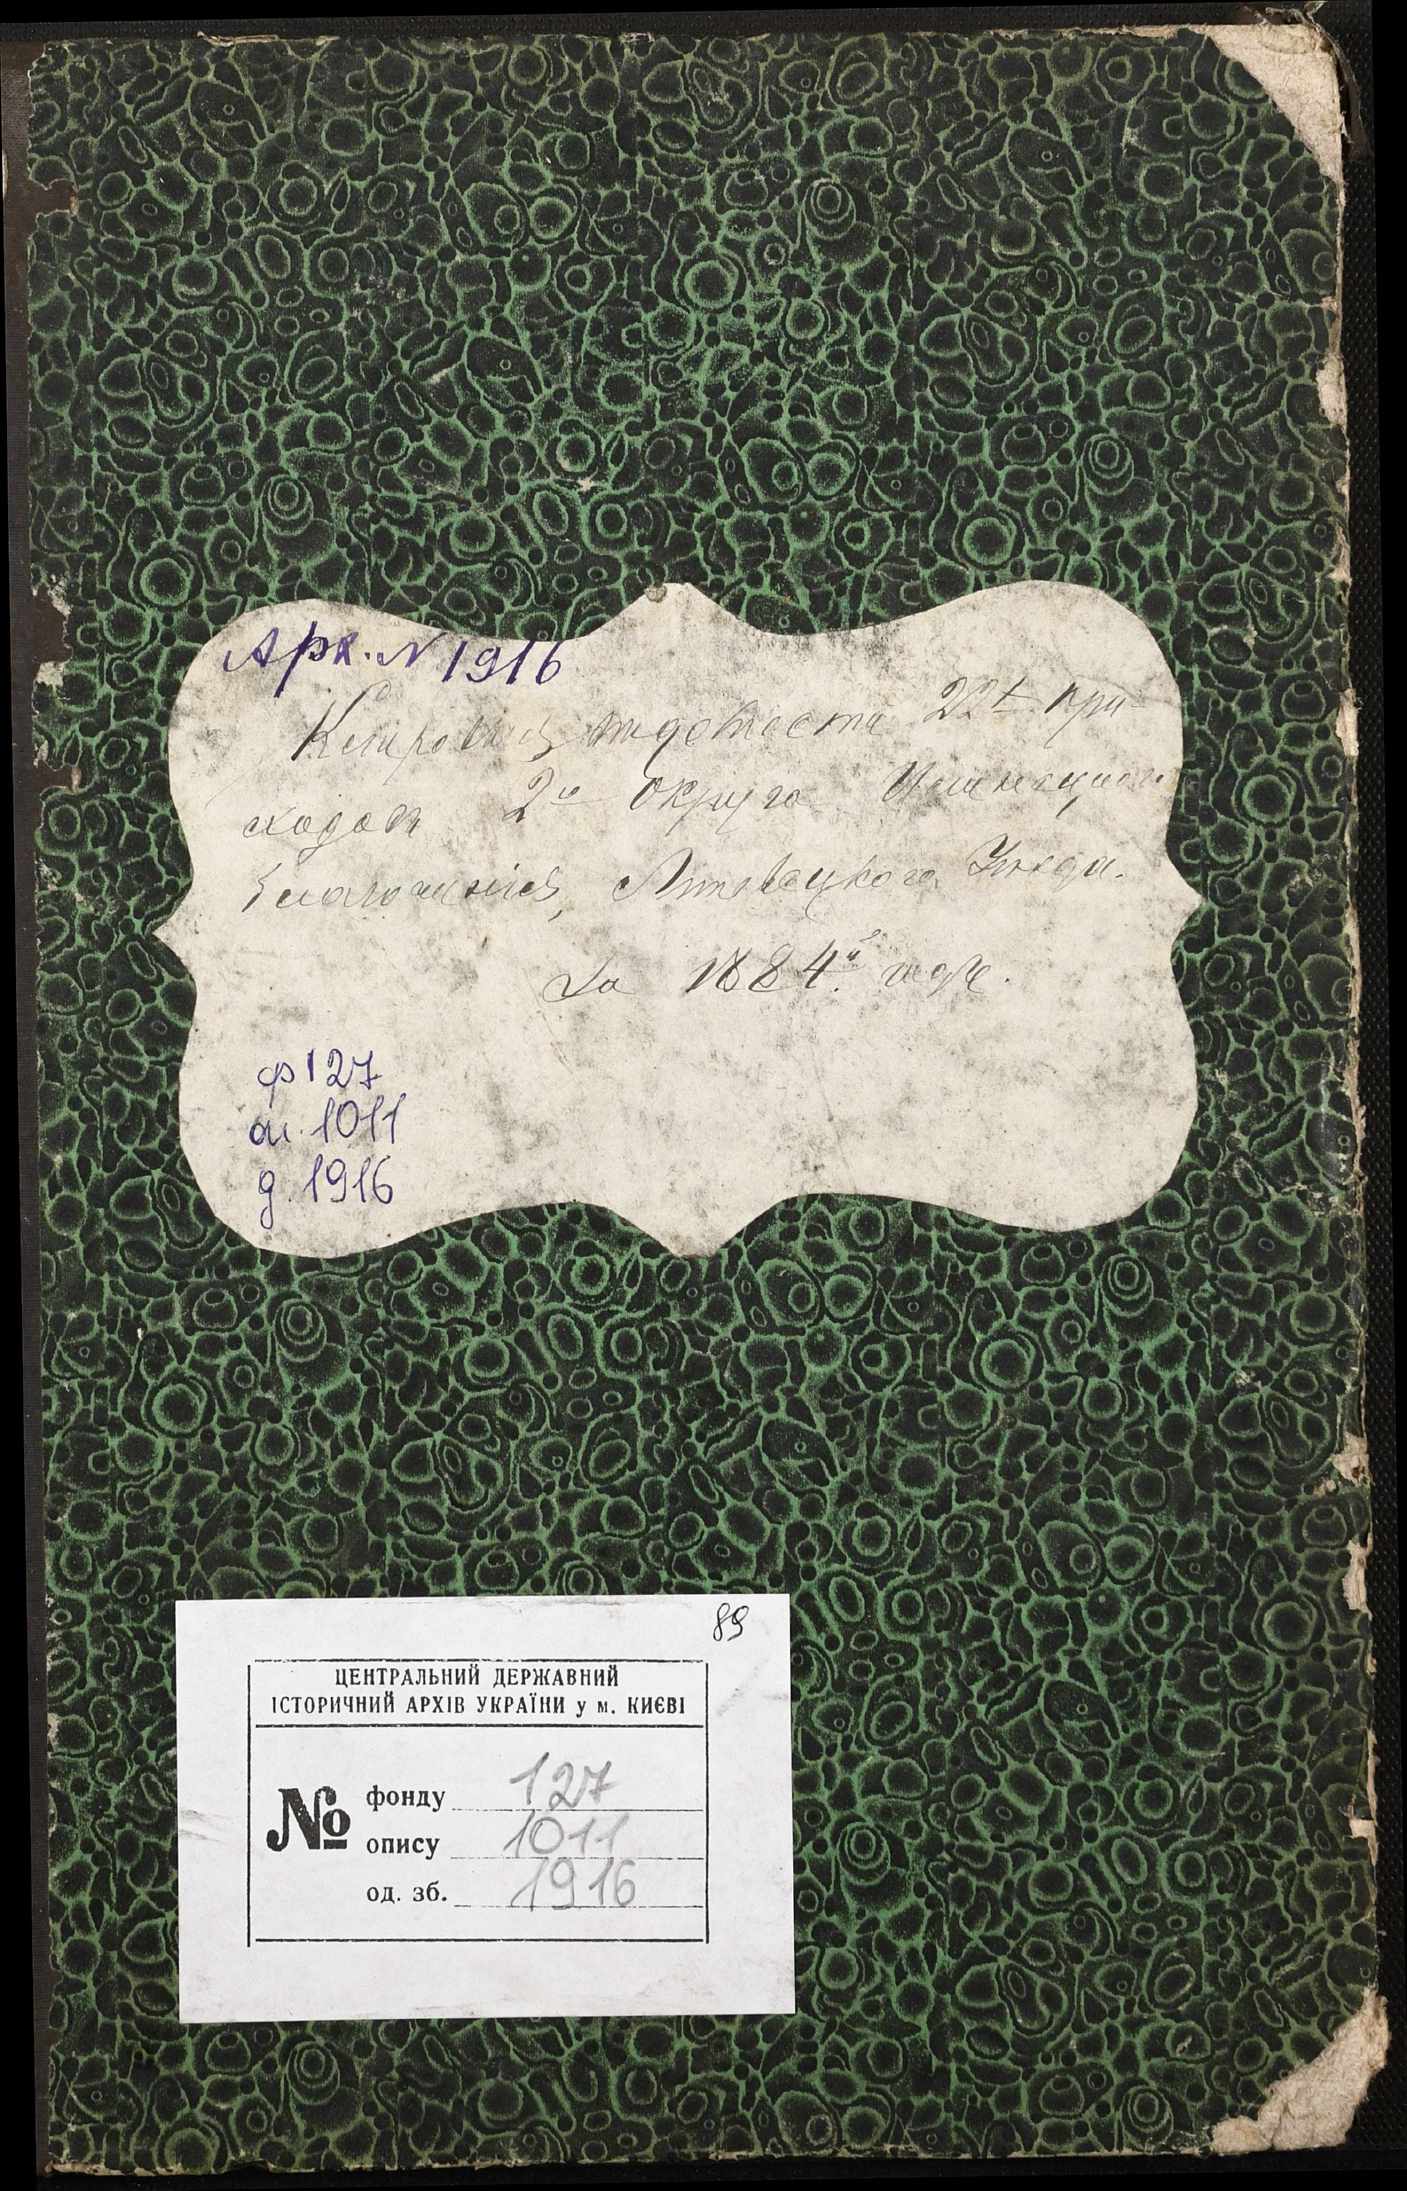 Арх. № 1916
Клировыя ведомости 22х при-
ходовъ 2го округа
благочинія, Липовецкого Уезда.
За 1884й годъ.
ф 127
оп. 1011
д. 1916
89
ЦЕНТРАЛЬНИЙ ДЕРЖАВНИЙ
ІСТОРИЧНИЙ АРХІВ УКРАЇНИ у м. КИЄВІ
№
фонду 127
опису 1011
од. зб. 1916